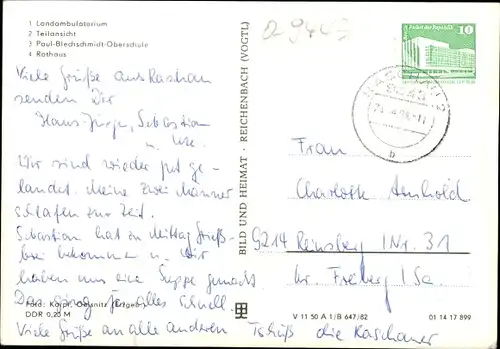 1 Landambulatorium
2 Teilansicht
3 Paul-Blechschmidt-Oberschule
4 Rathaus
Viele Grüße aus Raschau
senden Dir
Hans-Jürgen, Sebastian
u. Ute.
Wir sind wieder gut ge-
landet. Meine zwei Männer
schlafen zur Zeit.
Sebastian hat zu Mittag Grieß-
brei bekommen u. Wir
haben uns eine Suppe gemacht
Das ging für alles schnell.
Viele Grüße an alle anderen Tschüß die Raschauer
Foto: Kolpr. Oelsnitz (Erzgeb.)
DDR 0,20 M
BILD UND HEIMAT · REICHENBACH (VOGTL)
V 11 50 A 1/B 647/82
01 14 17 899
10
b
Frau
Charlotte Arnhold
9214 Reinsberg Nr. 31
Kr. Freiberg / Sa.